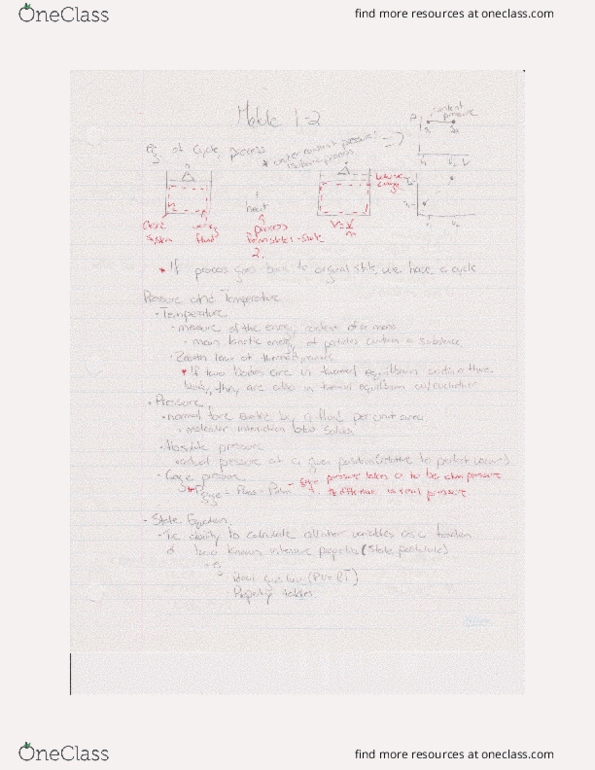 OneClass
find more resources at oneclass.com
Module 1-2
P
constant
pressure
Eg of cycle, process
* under constant pressure:
Isobaric process
V
heat
Closed
system
working
fluid
process
state
2.
* If process goes back to original state, we have a cycle
Pressure and Temperature
• Temperature
• measure of the energy content of a mass
• mean kinetic energy of particles within a substance
• Zeroth law of thermodynamics
* If two bodies are in thermal equilibrium with a third
body, they are also in thermal equilibrium w/ each other
• Pressure
• normal force exerted by a fluid per unit area
• molecular interaction
• Absolute pressure
• actual pressure at a given position (relative to perfect vacuum)
• Gage pressure
* Pgage = Pabs - Patm - gage pressure takes 0 to be atm pressure
difference is real pressure
• State Equation
• The ability to calculate all other variables as a function
of two known intensive properties (State postulate)
• eg
ideal gas law (PV=RT)
Property tables
OneClass
find more resources at oneclass.com